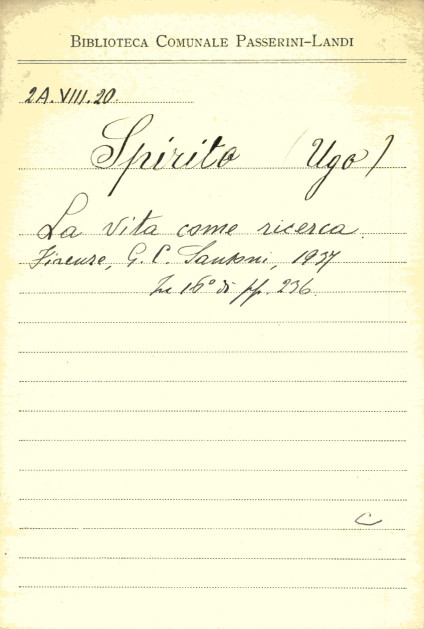 BIBLIOTECA COMUNALE PASSERINI-LANDI
2A.VIII.20.
Spirito (Ugo)
La vita come ricerca.
Firenze, G. C. Sansoni, 1937
In 16° di pp. 236.
C